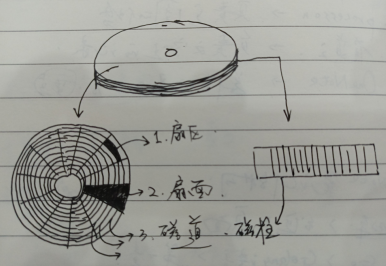 1.扇区.
2.扇面.
3.磁道. 磁柱